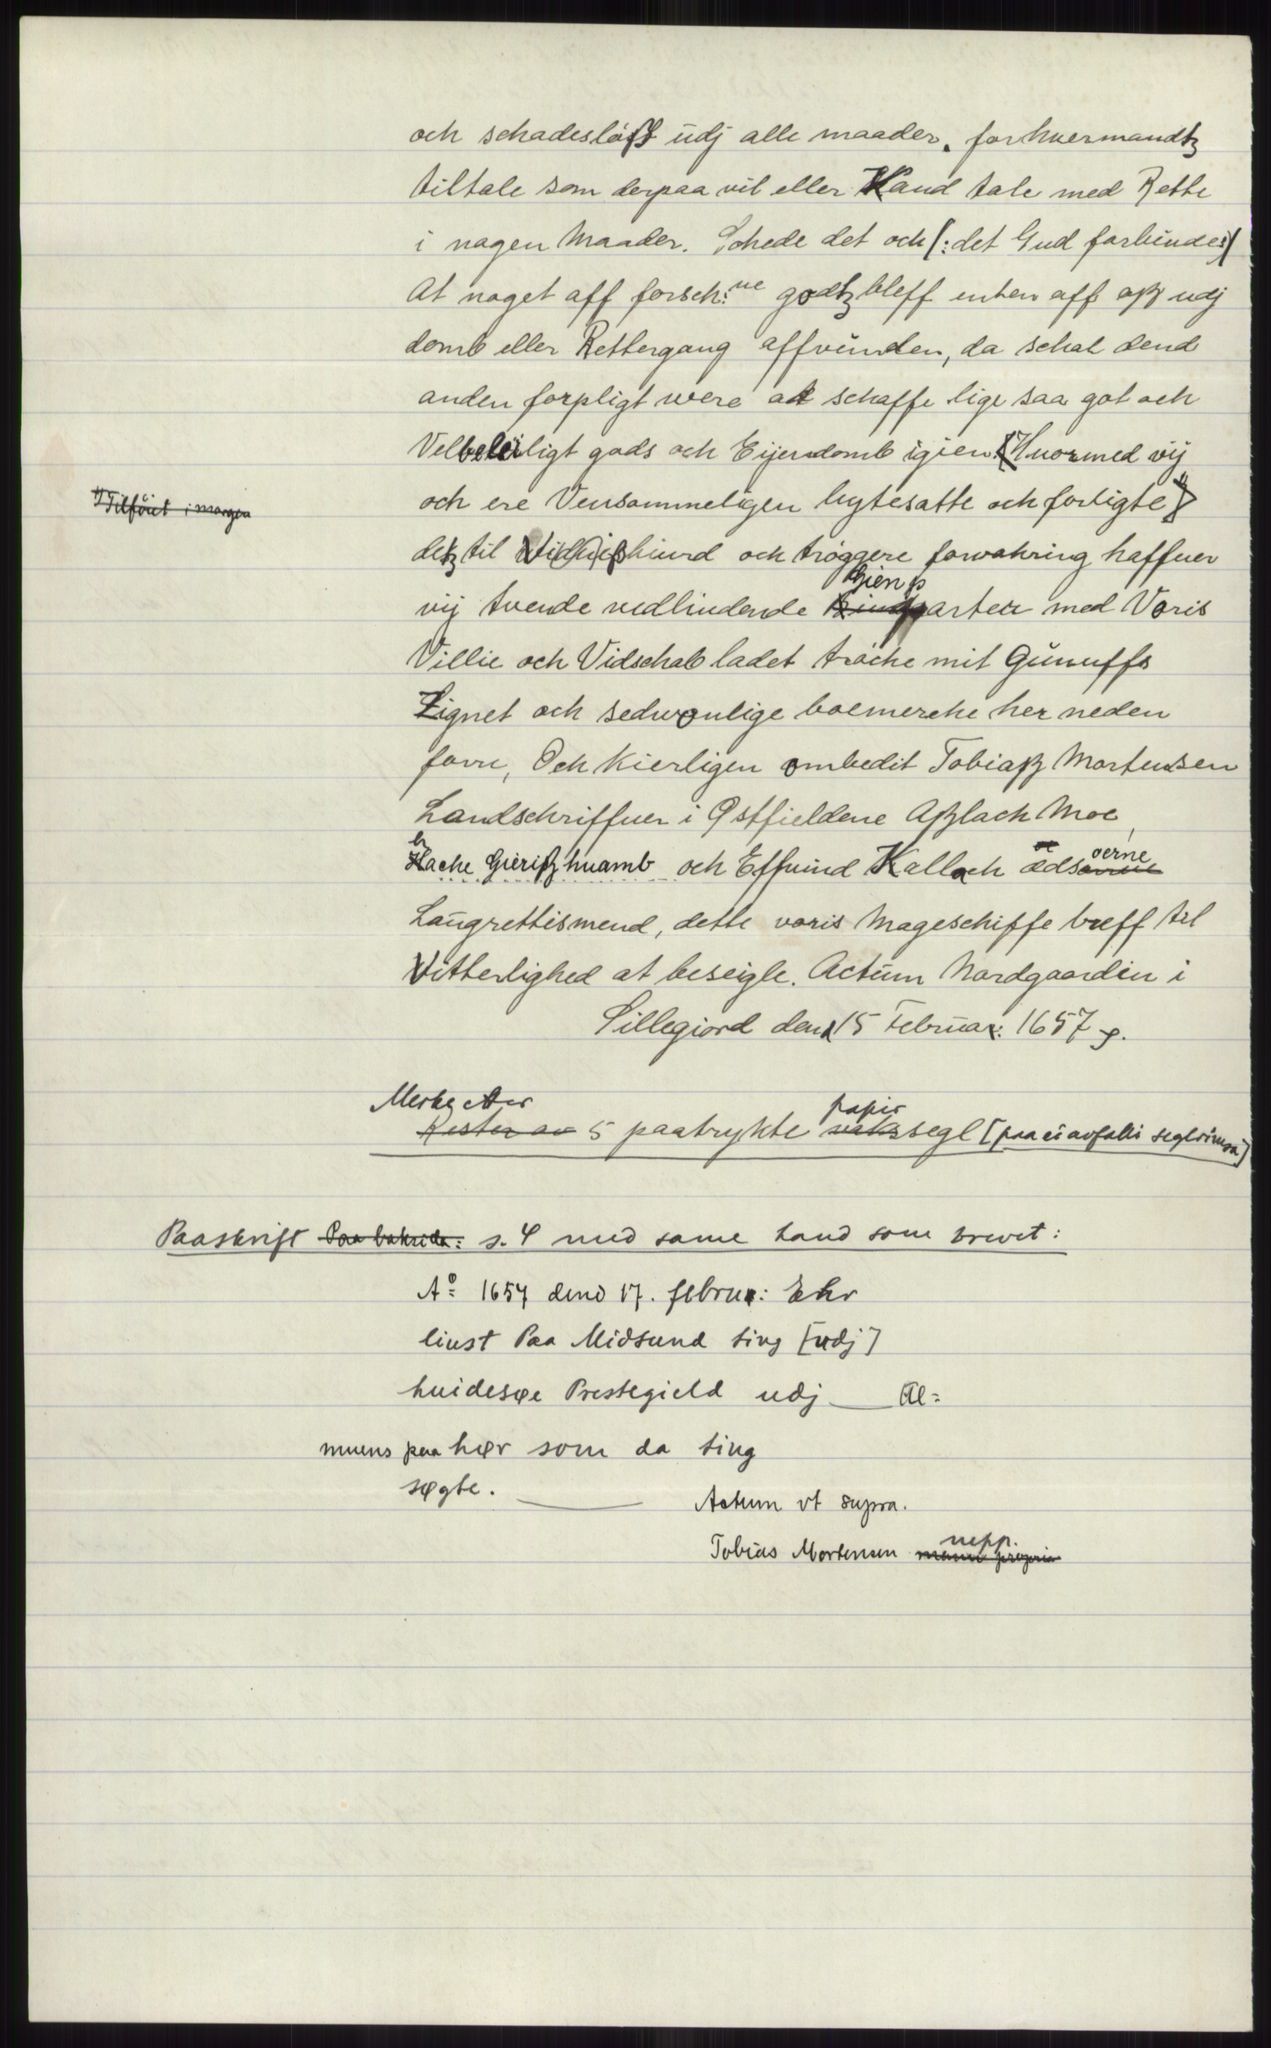 och schadesløsß udj alle maader, for huermandtz
tiltale som derpaa vil eller Kand tale med Rette
i nogen Maader. Schede det och (: det Gud forbiude:)
At noget aff forsch:ne godtz bleff enten aff oß udj
domb eller Rettergang affvünden, da schal dend
anden forpligt were at schaffe lige saa got och
Velbeleiligt gods och Eijendomb igien. [Huormed vij
och ere Vensammeligen bytesatte och forligte]
1) Tilföiet i margen
detz til Vidnißbiurd och tröggere forvahring haffuer
vij tvende vedliudende Gienparter med Voris
Villie och Vidschab ladet träche mit Günuffs
Zignet och sedwonlige boemerche her neden
forre, Och Kierligen ombedit Tobiaß Mortensen
Landschriffuer i Østfieldene Aßlach Moe,
Hache Gierißhuamb och Effuind Kallach ødsoerne
Laugrettismend, dette voris Mageschiffe breff til
Vitterlighed at beseigle. Actüm Nordgaarden i
Sillegiord den 15 Februar: 1657
Merke etter
Rester av 5 paatrykte papir vakssegl [paa ei avfalli seglrimsa]
Paaskrift Paa baksida: s. 4 med same hand som brevet:
A° 1657 dend 17. februa: Ehr
liust Paa Midsund ting [udj]
huidesøe Prestegield udj — Al=
muens paahør som da ting
søgte. —
Actum vt supra.
Tobias Mortensen mepp.
manu propria